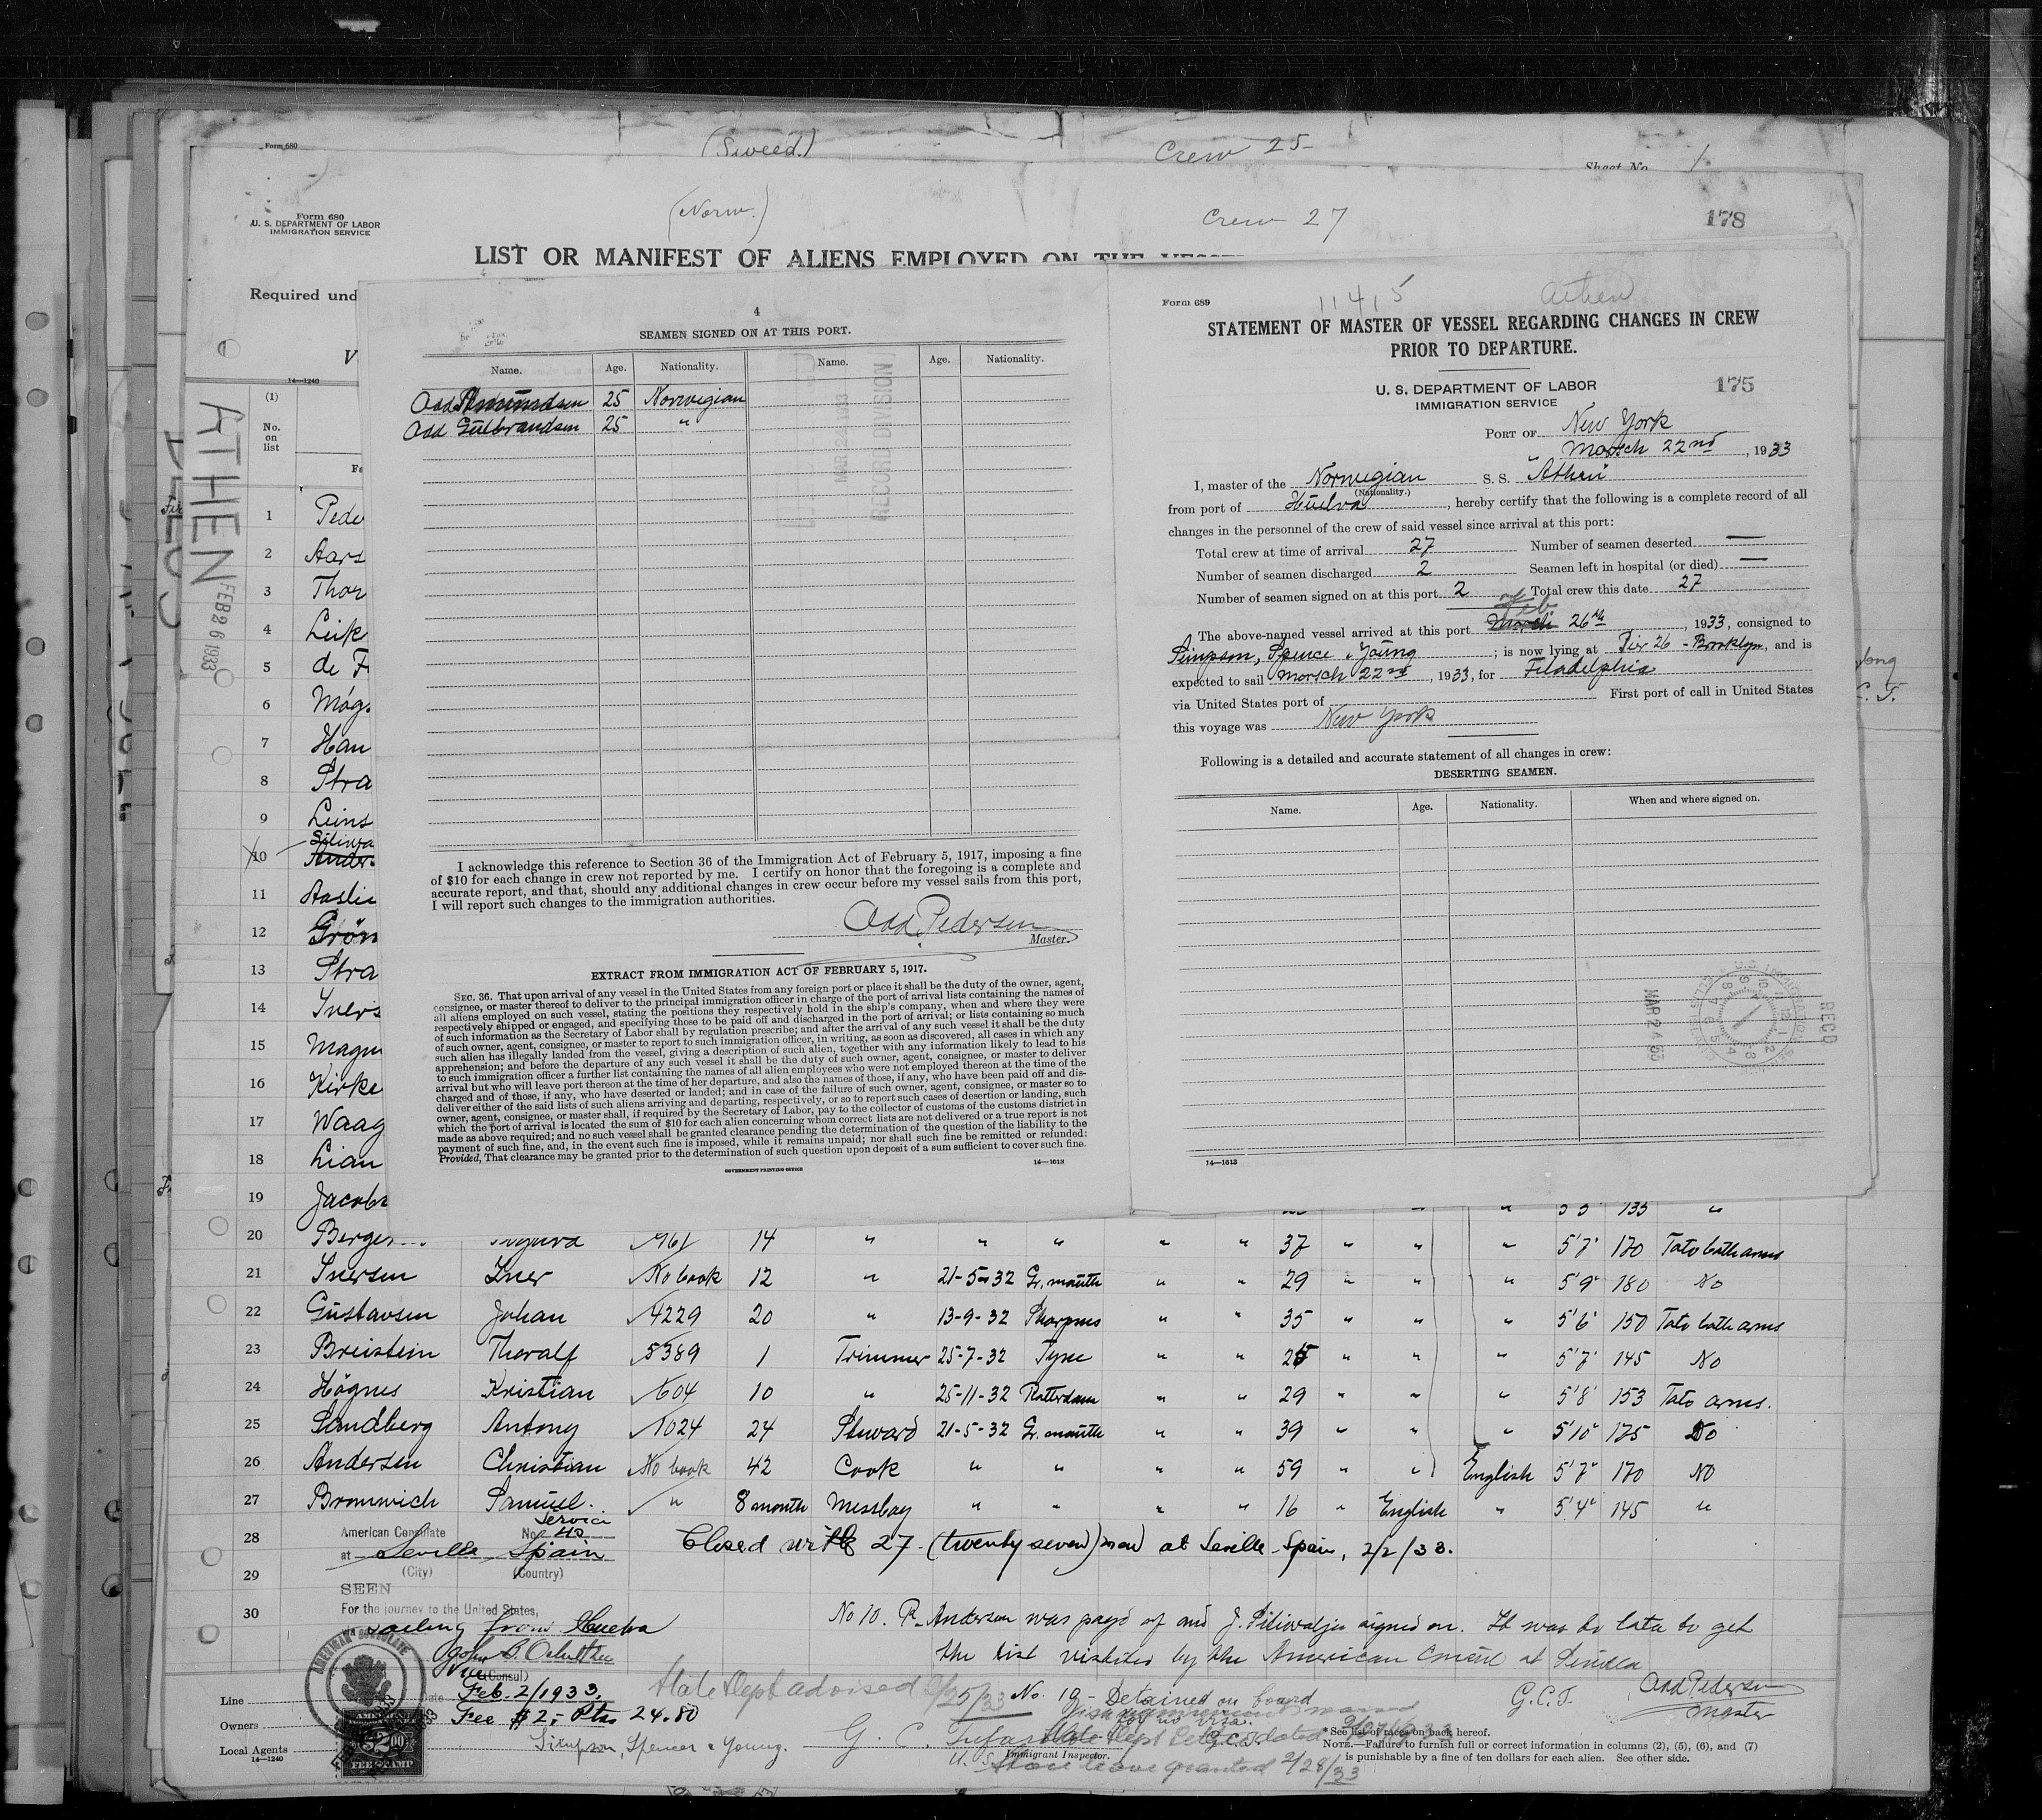 Form 680
(Sweed.)
Crew 25
Sheet No. 1
Form 680
U. S. DEPARTMENT OF LABOR
IMMIGRATION SERVICE
(Norw.)
Crew 27
178
LIST OR MANIFEST OF ALIENS EMPLOYED ON THE
Required und
V
14—1240
(1)
No.
on
list
ATHEN
FEB 26 1933
1 Pede
2 Aars
3 Thor
4 Leik
5 de F
6 Mag
7 Han
8 Stra
9 Leins
10
11 Aaslie
12 Grön
13 Stra
14 Ivers
15 Magn
16 Kirke
17 Waag
18 Lian
19 Jacobs
4
SEAMEN SIGNED ON AT THIS PORT.
Name. Age. Nationality. Name. Age. Nationality.
Odd Amundsen 25 Norwegian
Odd Gulbrandsen 25 "
MAR 24 1933
RECORD DIVISION
I acknowledge this reference to Section 36 of the Immigration Act of February 5, 1917, imposing a fine
of $10 for each change in crew not reported by me. I certify on honor that the foregoing is a complete and
accurate report, and that, should any additional changes in crew occur before my vessel sails from this port,
I will report such changes to the immigration authorities.
Odd Pedersen
Master.
EXTRACT FROM IMMIGRATION ACT OF FEBRUARY 5, 1917.
SEC. 36. That upon arrival of any vessel in the United States from any foreign port or place it shall be the duty of the owner, agent,
consignee, or master thereof to deliver to the principal immigration officer in charge of the port of arrival lists containing the names of
all aliens employed on such vessel, stating the positions they respectively hold in the ship's company, when and where they were
respectively shipped or engaged, and specifying those to be paid off and discharged in the port of arrival; or lists containing so much
of such information as the Secretary of Labor shall by regulation prescribe; and after the arrival of any such vessel it shall be the duty
of such owner, agent, consignee, or master to report to such immigration officer, in writing, as soon as discovered, all cases in which any
such alien has illegally landed from the vessel, giving a description of such alien, together with any information likely to lead to his
apprehension; and before the departure of any such vessel it shall be the duty of such owner, agent, consignee, or master to deliver
to such immigration officer a further list containing the names of all alien employees who were not employed thereon at the time of the
arrival but who will leave port thereon at the time of her departure, and also the names of those, if any, who have been paid off and dis-
charged and of those, if any, who have deserted or landed; and in case of the failure of such owner, agent, consignee, or master so to
deliver either of the said lists of such aliens arriving and departing, respectively, or so to report such cases of desertion or landing, such
owner, agent, consignee, or master shall, if required by the Secretary of Labor, pay to the collector of customs of the customs district in
which the port of arrival is located the sum of $10 for each alien concerning whom correct lists are not delivered or a true report is not
made as above required; and no such vessel shall be granted clearance pending the determination of the question of the liability to the
payment of such fine, and, in the event such fine is imposed, while it remains unpaid; nor shall such fine be remitted or refunded:
Provided, That clearance may be granted prior to the determination of such question upon deposit of a sum sufficient to cover such fine.
GOVERNMENT PRINTING OFFICE
14—1613
Form 689
11415
Athen
STATEMENT OF MASTER OF VESSEL REGARDING CHANGES IN CREW
PRIOR TO DEPARTURE.
U. S. DEPARTMENT OF LABOR
IMMIGRATION SERVICE
175
PORT OF New York
Marsch 22nd, 1933
I, master of the Norwegian S. S. "Athen"
(Nationality.)
from port of Huelva, hereby certify that the following is a complete record of all
changes in the personnel of the crew of said vessel since arrival at this port:
Total crew at time of arrival 27 Number of seamen deserted —
Number of seamen discharged 2 Seamen left in hospital (or died) —
Number of seamen signed on at this port 2 Total crew this date 27
The above-named vessel arrived at this port March Feb 26th, 1933, consigned to
Simpson, Spence & Young; is now lying at Pier 26 - Brooklyn, and is
expected to sail Marsch 22nd, 1933, for Filadelphia
via United States port of First port of call in United States
this voyage was New York
Following is a detailed and accurate statement of all changes in crew:
DESERTING SEAMEN.
Name. Age. Nationality. When and where signed on.
REC'D
MAR 24 33
14—1613
" 135 "
20 Berges 14 " " " " " 37 " " " 5'7" 170 Tato both arms
21 Iversen Iver No book 12 " 21-5-32 Gr. mouth " " 29 " " " 5'9" 180 No
22 Gustavsen Johan 4229 20 " 13-9-32 " " 35 " " " 5'6" 150 Tato both arms
23 Breistein Thoralf 5389 1 Trimmer 25-7-32 Tyne " " 25 " " " 5'7" 145 No
24 Högnes Kristian 604 10 " 25-11-32 Rotterdam " " 29 " " " 5'8" 153 Tato arms.
25 Sandberg Antony 1024 24 Stuward 21-5-32 Gr. mouth " " 39 " " " 5'10" 175 No
26 Andersen Christian No book 42 Cook " " " " 59 " " English 5'7" 170 No
27 Bromwich Samuel. " 8 month Messboy " " " " 16 " English " 5'4" 145 "
28 American Consulate Service No. 40 Closed with 27 (twenty seven) men at Seville-Spain, 2/2/33.
at Seville Spain
(City) (Country)
29
SEEN
30 For the journey to the United States,
sailing from Huelva
No 10. R. Andersen was payd of and J. signed on. It was to late to get
the list visited by the American Consul at Sevilla
Odd Pedersen
Master
G.C.T.
(Consul)
AMERICAN CONSULATE
Date Feb. 2/1933.
Fee $2,- Ptas 24.80
State Dept advised 2/25/33
No. 10 - Detained on board
$2.00
FEE STAMP
Line
Owners
Local Agents Simpson, Spence & Young.
14—1240
G. C.
Immigrant Inspector.
Shore leave granted 2/28/33
* See list of races on back hereof.
NOTE.—Failure to furnish full or correct information in columns (2), (5), (6), and (7)
is punishable by a fine of ten dollars for each alien. See other side.